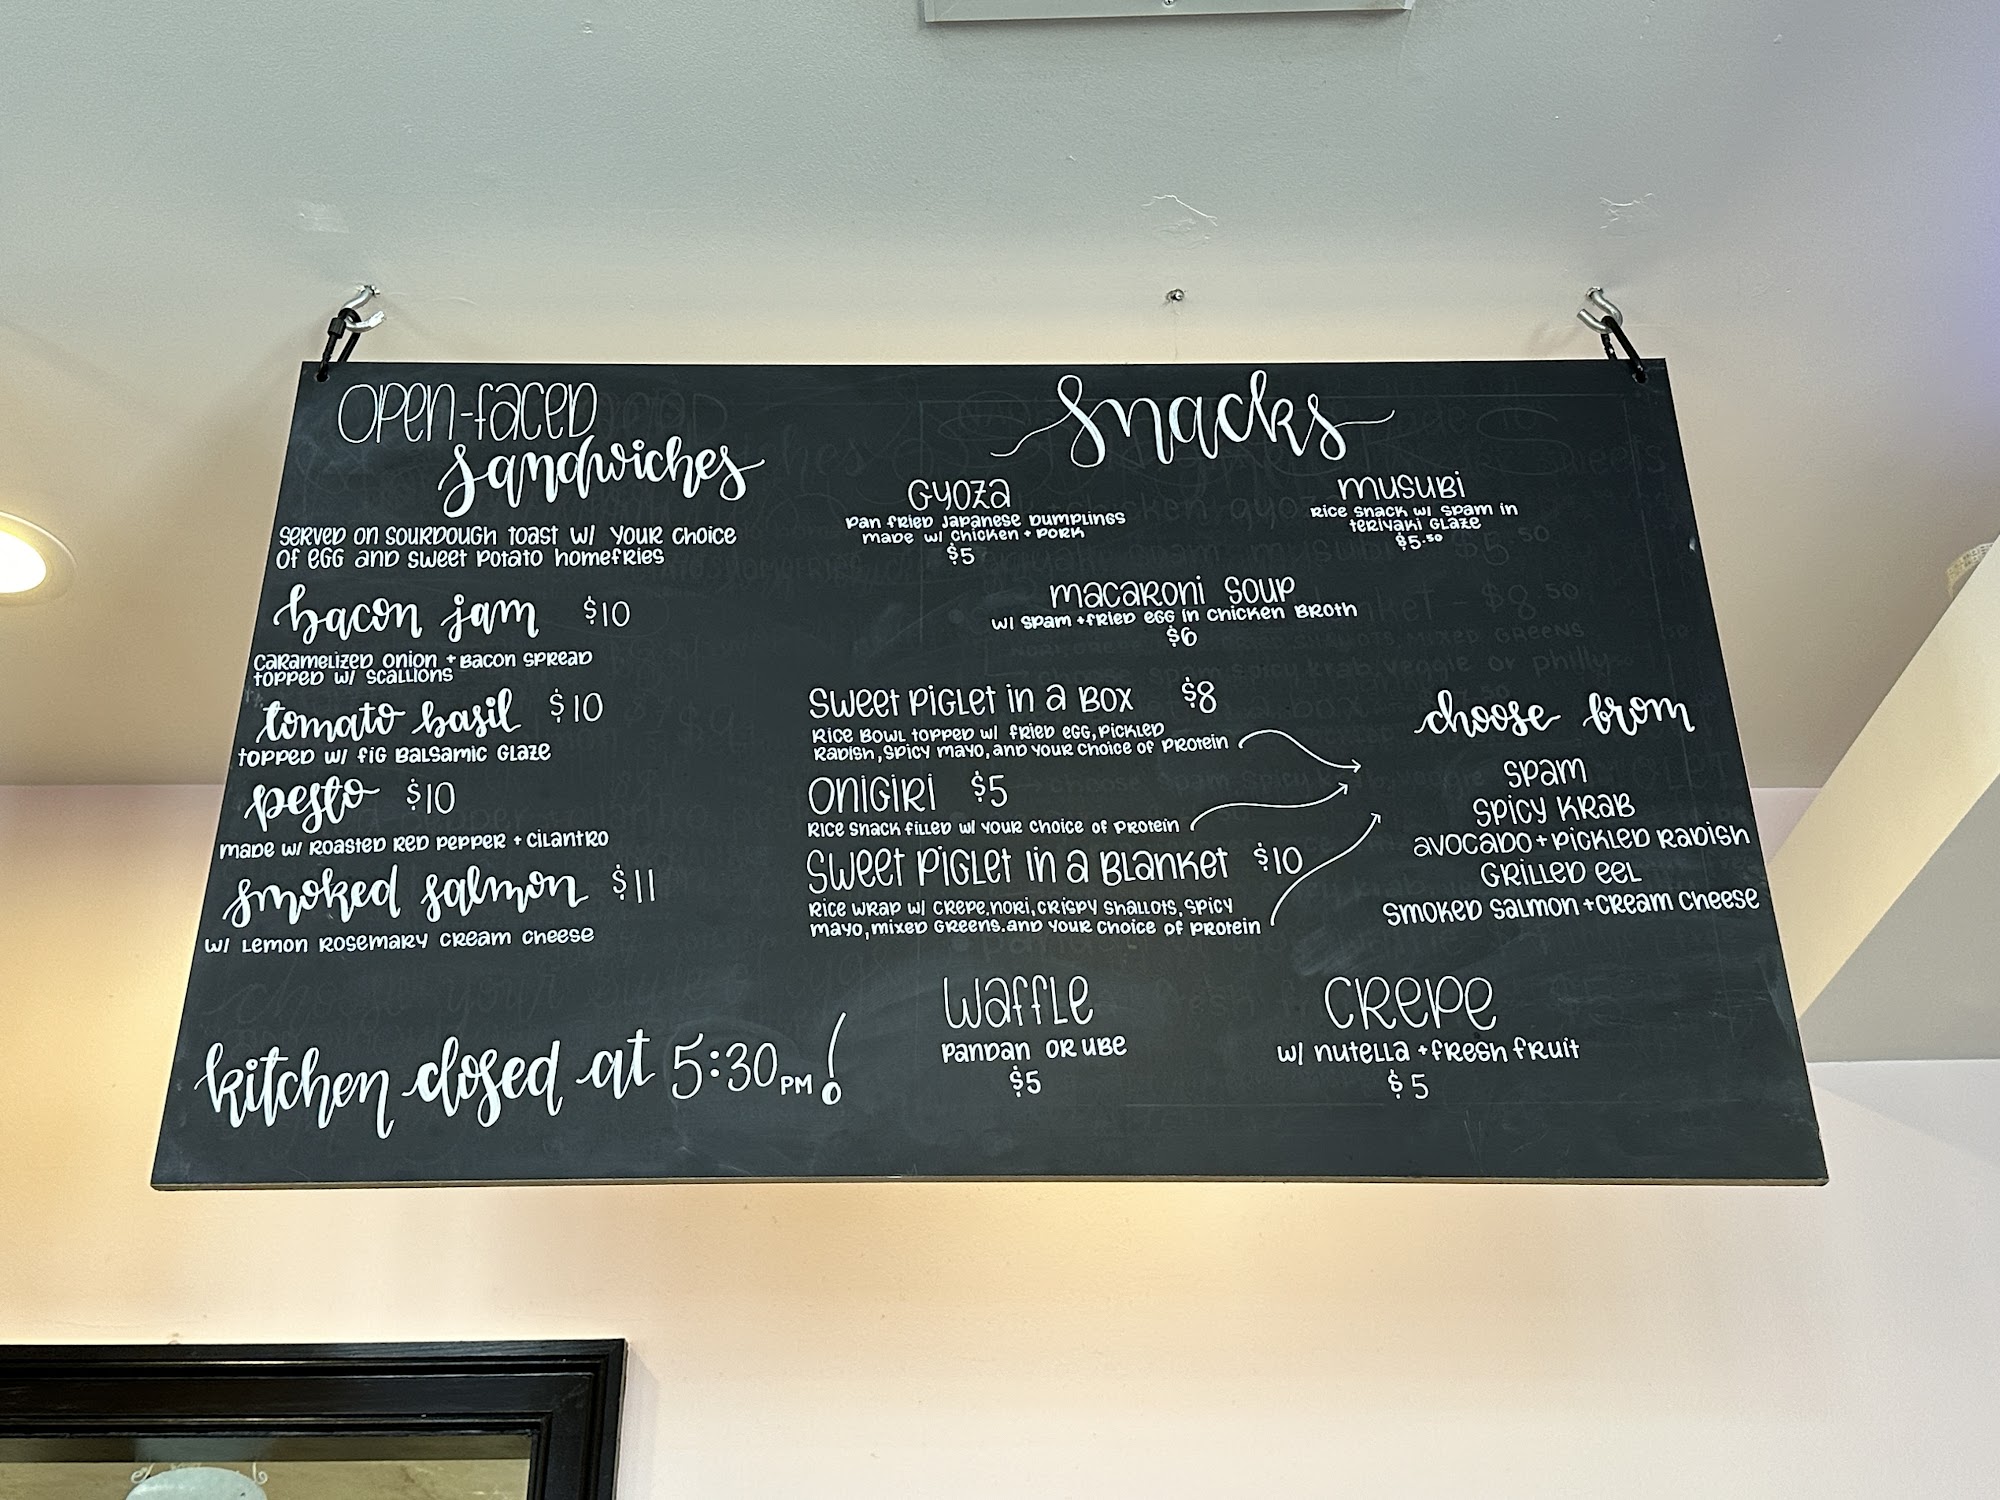 OPEN-FACED
sandwiches
SERVED ON SOURDOUGH TOAST W/ YOUR CHOICE
OF EGG AND SWEET POTATO HOMEFRIES
bacon jam $10
CARAMELIZED ONION + BACON SPREAD
TOPPED W/ SCALLIONS
tomato basil $10
TOPPED W/ FIG BALSAMIC GLAZE
pesto $10
MADE W/ ROASTED RED PEPPER + CILANTRO
smoked salmon $11
W/ LEMON ROSEMARY CREAM CHEESE
kitchen closed at 5:30 PM!
Snacks
GYOZA
PAN FRIED JAPANESE DUMPLINGS
MADE W/ CHICKEN + PORK
$5
MUSUBI
RICE SNACK W/ SPAM IN
TERIYAKI GLAZE
$5.50
MACARONI SOUP
W/ SPAM + FRIED EGG IN CHICKEN BROTH
$6
SWEET PIGLET IN A BOX $8
RICE BOWL TOPPED W/ FRIED EGG, PICKLED
RADISH, SPICY MAYO, AND YOUR CHOICE OF PROTEIN
ONIGIRI $5
RICE SNACK FILLED W/ YOUR CHOICE OF PROTEIN
SWEET PIGLET IN A BLANKET $10
RICE WRAP W/ CREPE, NORI, CRISPY SHALLOTS, SPICY
MAYO, MIXED GREENS, AND YOUR CHOICE OF PROTEIN
choose from
SPAM
SPICY KRAB
AVOCADO + PICKLED RADISH
GRILLED EEL
SMOKED SALMON + CREAM CHEESE
WAFFLE
PANDAN OR UBE
$5
CREPE
W/ NUTELLA + FRESH FRUIT
$5